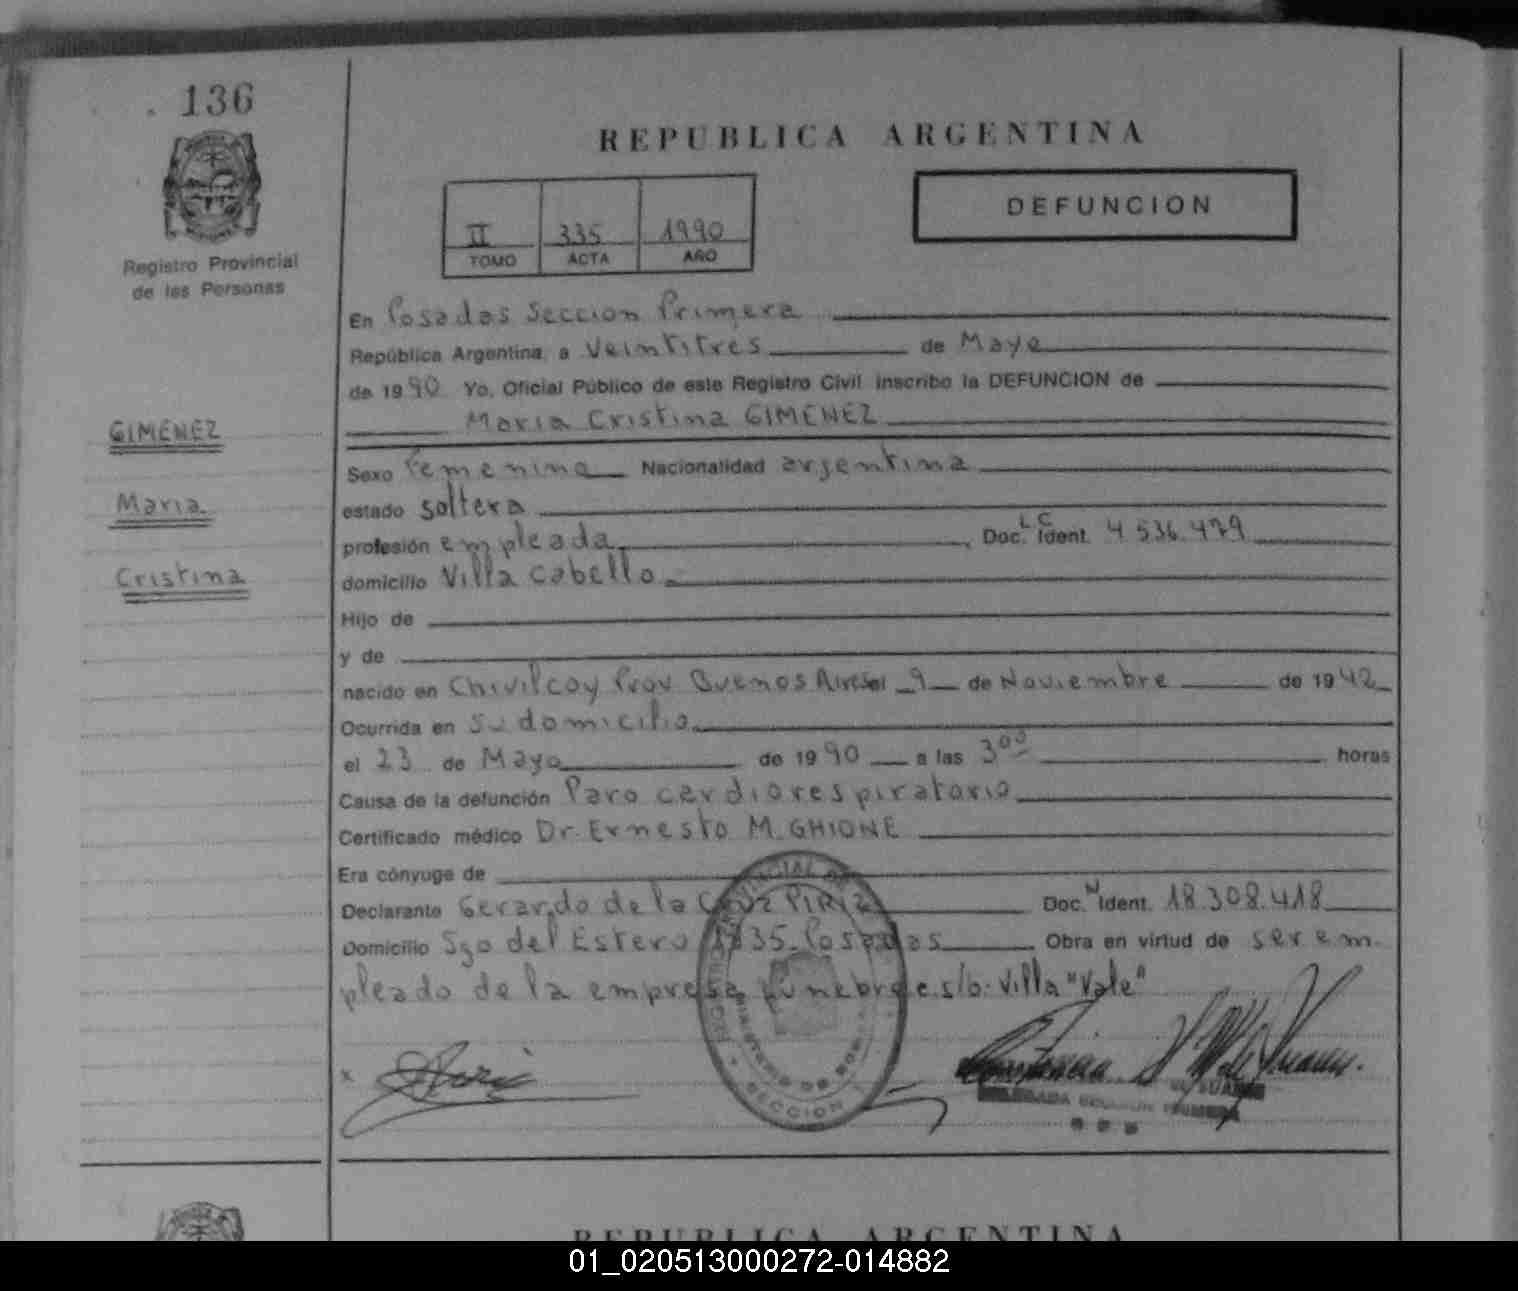 136
Registro Provincial
de las Personas
GIMENEZ
Maria
Cristina
REPUBLICA ARGENTINA
DEFUNCION
II 335 1990
TOMO ACTA AÑO
En Posadas Seccion Primera
República Argentina, a Veintitres de Mayo
de 1990 Yo, Oficial Público de este Registro Civil inscribo la DEFUNCION de
Maria Cristina GIMENEZ
Sexo Femenino Nacionalidad argentina
estado soltera
profesión empleada Doc. L C Ident. 4.536.479
domicilio Villa Cabello
Hijo de
y de
nacido en Chivilcoy Prov Buenos Aires el 9 de Noviembre de 1942
Ocurrida en su domicilio
el 23 de Mayo de 1990 a las 3⁰⁰ horas
Causa de la defunción Paro cardiorespiratorio
Certificado médico Dr. Ernesto M. GHIONE
Era cónyuge de
Declarante Gerardo de la Cruz PIRIZ Doc. N Ident. 18.308.418
Domicilio Sgo del Estero 1835 Posadas Obra en virtud de ser em-
pleado de la empresa fúnebre c.s/o. Villa "Vale"
SECCION
REPUBLICA ARGENTINA
01_020513000272-014882